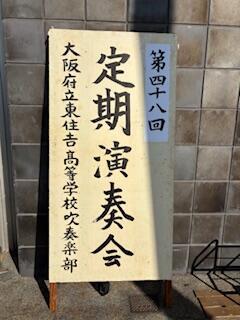 第四十八回
定期演奏会
大阪府立東住吉高等学校吹奏楽部